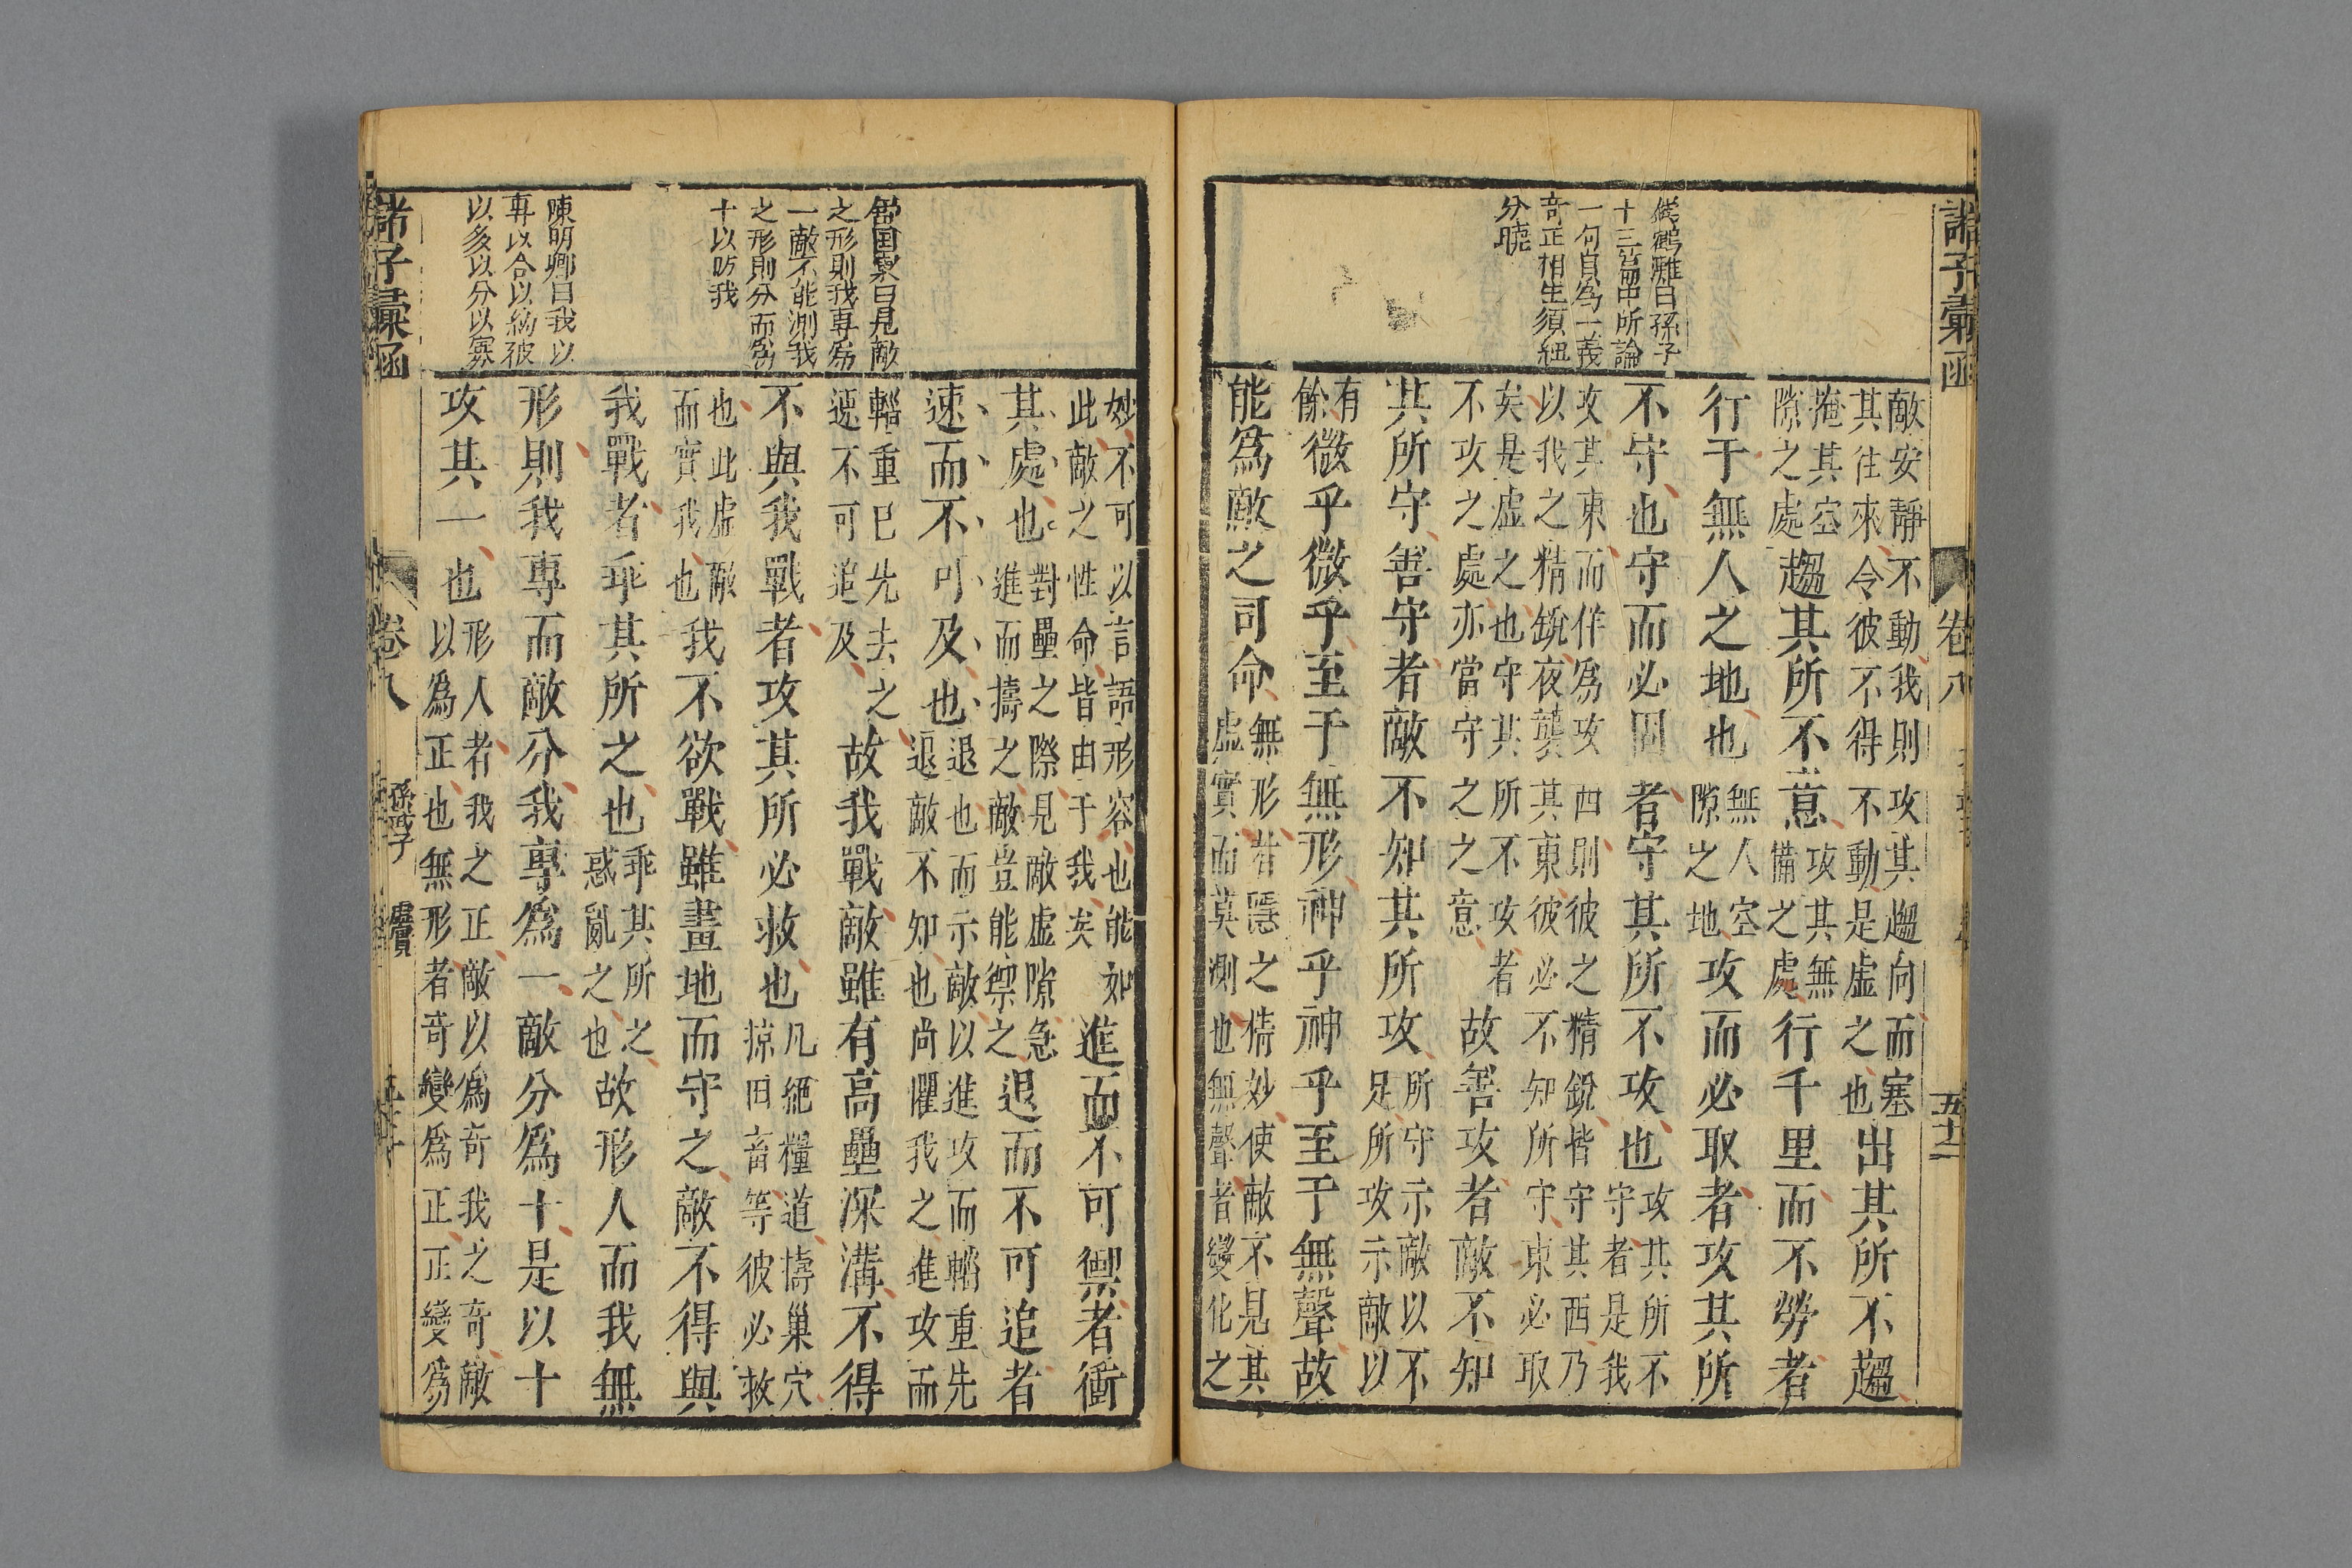 諸子彙函
卷八
五十二
儲鶴雕曰孫子
十三篇中所論
一句自為一義
奇正相生須細
分曉
敵安靜不動我則攻其趨向而塞
其往來令彼不得不動是虛之也出其所不趨
掩其空攻其無
隙之處趨其所不意備之處行千里而不勞者
行于無人之地也無人空隙之地攻而必取者攻其所
不守也守而必固者守其所不攻也攻其所不守者是我
攻其東而佯為攻西則彼之精銳皆守其西乃
以我之精銳夜襲其東彼必不知所守東必取
矣是虛之也守其所不攻者
不攻之處亦當守之之意故善攻者敵不知
其所守善守者敵不知其所攻所守示敵以不足所攻示敵以
有餘微乎微乎至于無形神乎神乎至于無聲故
能為敵之司命無形者隱之情妙使敵不見其
虛實而莫測也無聲者變化之
妙不可以言語形容也能如
此敵之性命皆由于我矣進而不可禦者衝
其處也對壘之際見敵虛隙急進而擣之敵豈能禦之退而不可追者
速而不可及也退也而示敵以進攻而輜重先
退敵不知也尚懼我之進攻而
輜重已先去之
遽不可追及故我戰敵雖有高壘深溝不得
不與我戰者攻其所必救也凡絕糧道擣巢穴
掠田畜等彼必救
也此虛敵
而實我也我不欲戰雖畫地而守之敵不得與
我戰者乖其所之也乖其所之惑亂之也故形人而我無
形則我專而敵分我專為一敵分為十是以十
攻其一也形人者我之正敵以為奇我之奇敵
以為正也無形者奇變為正正變為
鄒國寮曰見敵
之形則我專為
一敵不能測我
之形則分而為
十以防我
陳明卿曰我以
專以合以為彼
以多以分以寡
諸子彙函
卷八
孫子
虛實